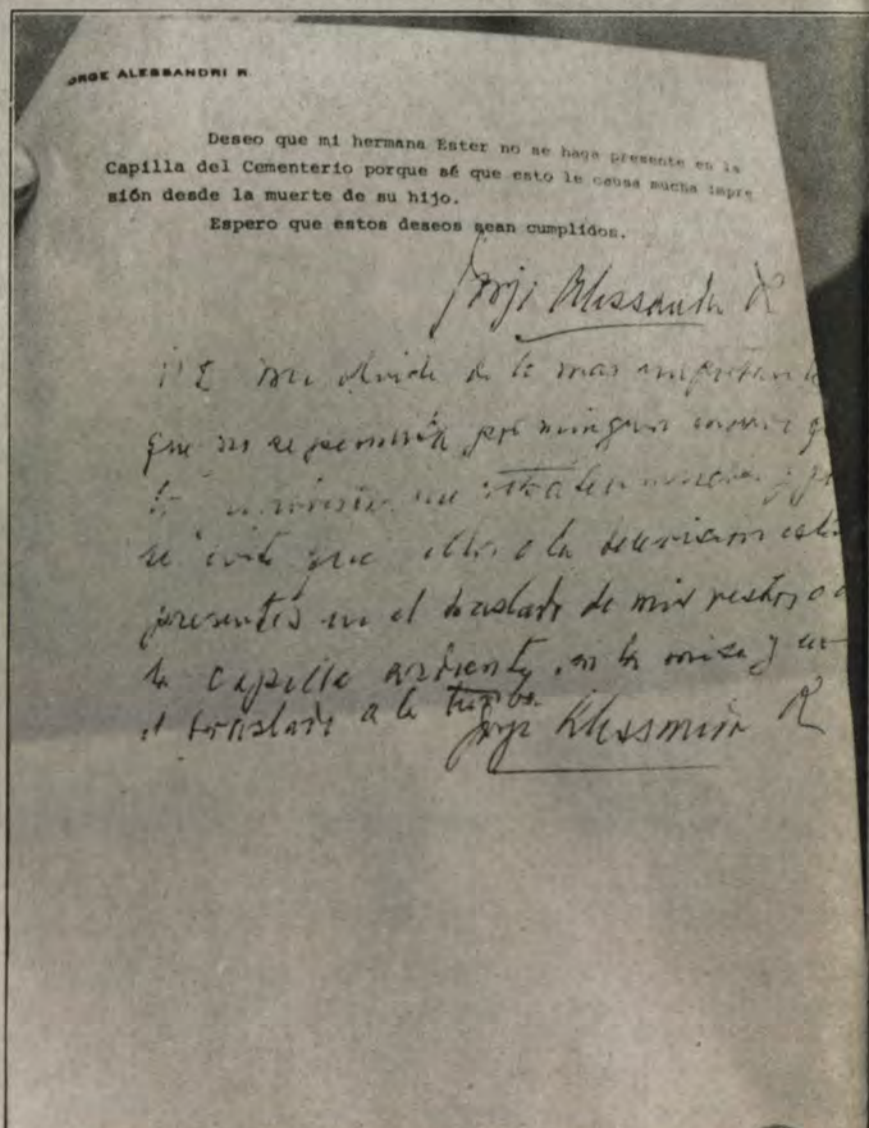 ORGE ALESSANDRI R.
Deseo que mi hermana Ester no se haga presente en la
Capilla del Cementerio porque sé que esto le causa mucha impre
sión desde la muerte de su hijo.
Espero que estos deseos sean cumplidos.
Jorge Alessandri R
me olvidé de lo mas importante
que no se permita por ningun
la
se evite que ellos o la television estén
presentes en el traslado de mis restos a
la capilla ardiente, en la misa y en
el traslado a la tumba.
Jorge Alessandri R